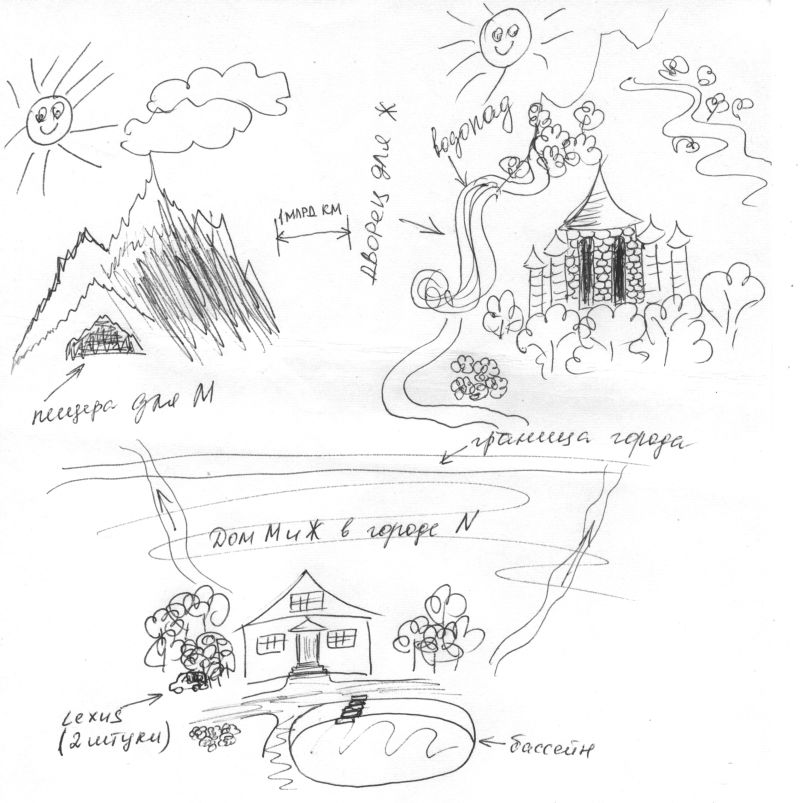 1 МЛРД КМ
ДВОРЕЦ для Ж
водопад
пещера для М
граница города
Дом М и Ж в городе N
Lexus
(2 штуки)
бассейн